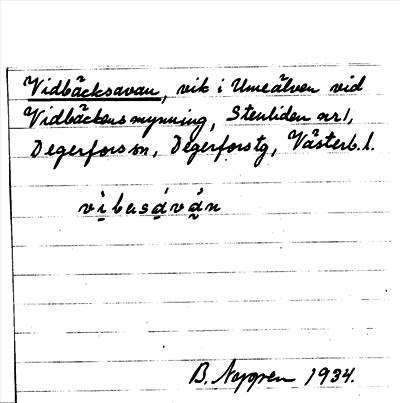 Vidbäcksavan, vik i Umeälven vid
Vidbäckens mynning, Stenliden nr 1,
Degerfors sn, Degerfors tg, Västerb. l.
B. Norgren 1934.